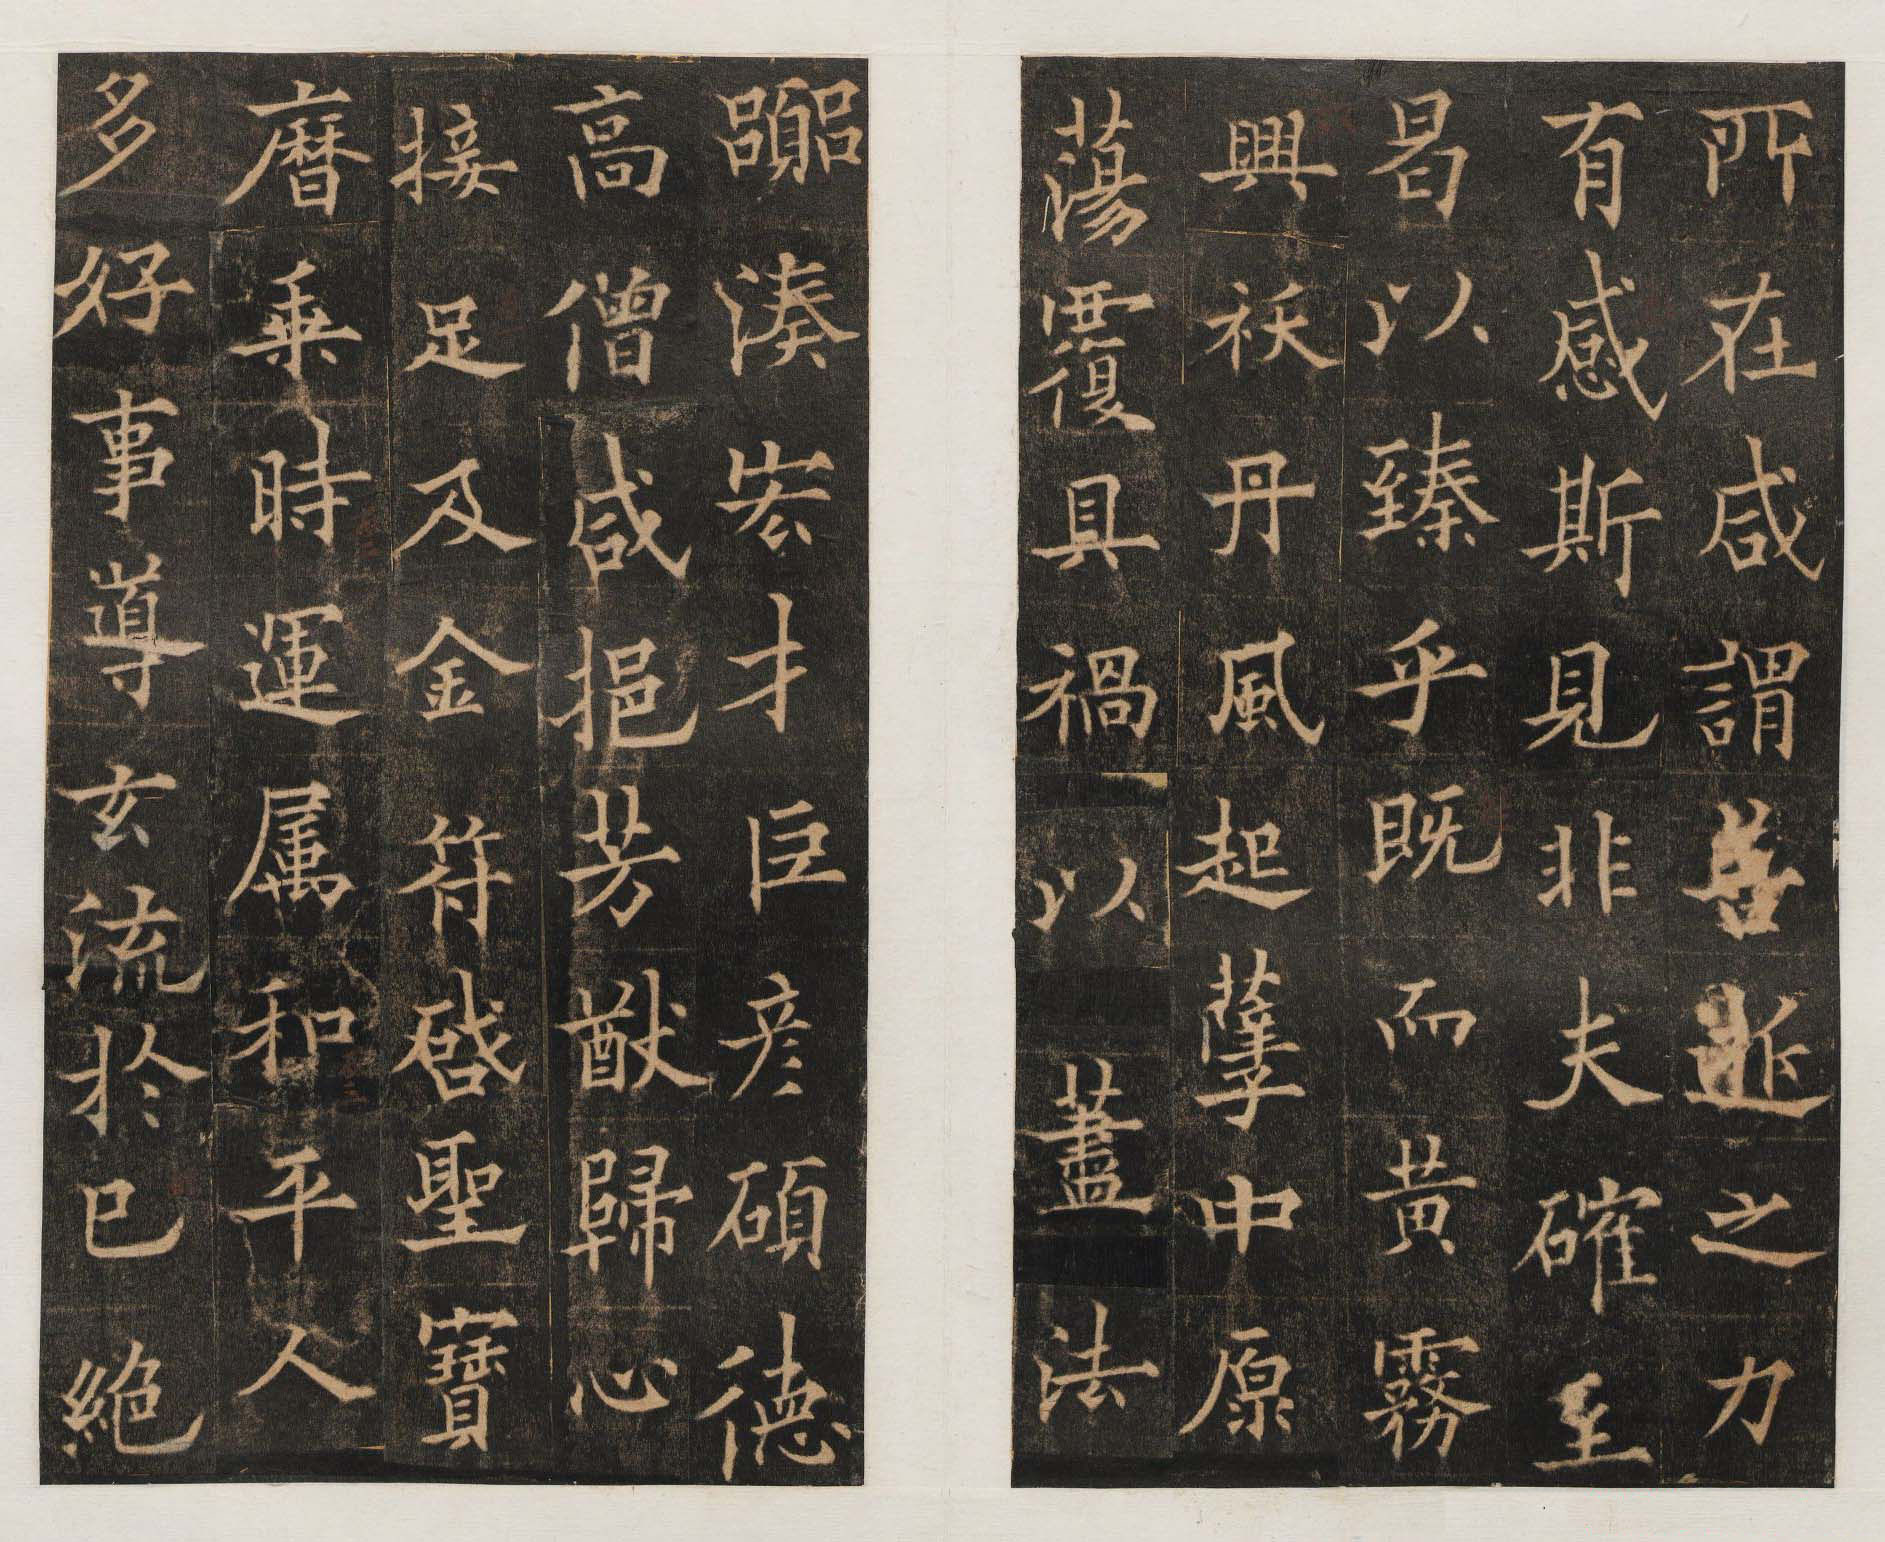 所在咸謂善逝之力
有感斯見非夫確至
曷以臻乎既而黃霧
興祅丹風起孽中原
蕩覆具禍以藎法
嚻湊宏才巨彥碩德
高僧咸挹芳猷歸心
接足及金符啓聖寶
曆乗時運属和平人
多好事導玄流於已絶